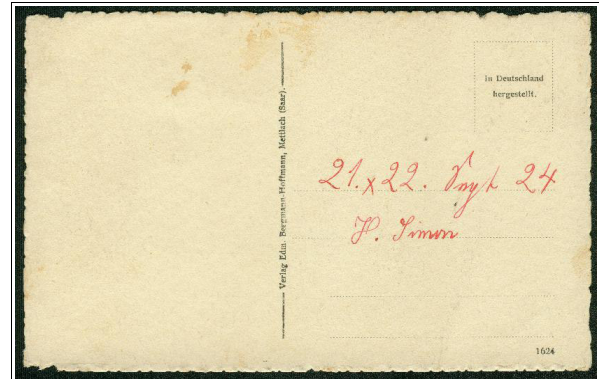 Verlag Edm. Bergmann-Hoffmann, Mettlach (Saar).
In Deutschland
hergestellt.
21. x 22. Sept 24
H. Simon
1624